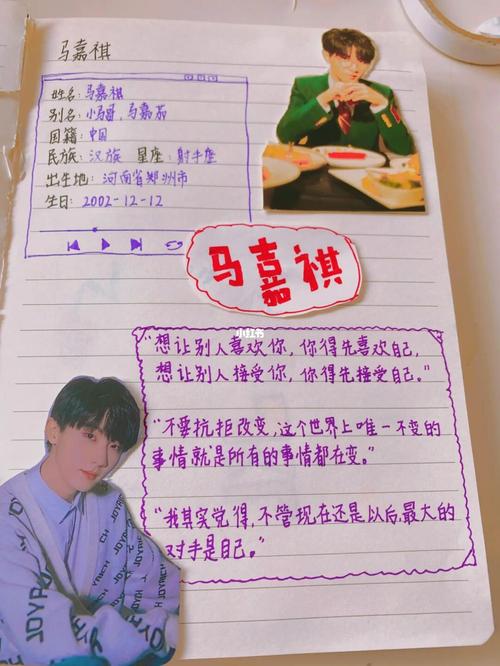 马嘉祺
姓名：马嘉祺
别名：小马哥，马嘉茄
国籍：中国
民族：汉族 星座：射手座
出生地：河南省郑州市
生日：2002-12-12
马嘉祺
小红书
“想让别人喜欢你，你得先喜欢自己，
想让别人接受你，你得先接受自己。”
“不要抗拒改变，这个世界上唯一不变的
事情就是所有的事情都在变。”
“我其实觉得，不管现在还是以后，最大的
对手是自己。”
JOYRICH